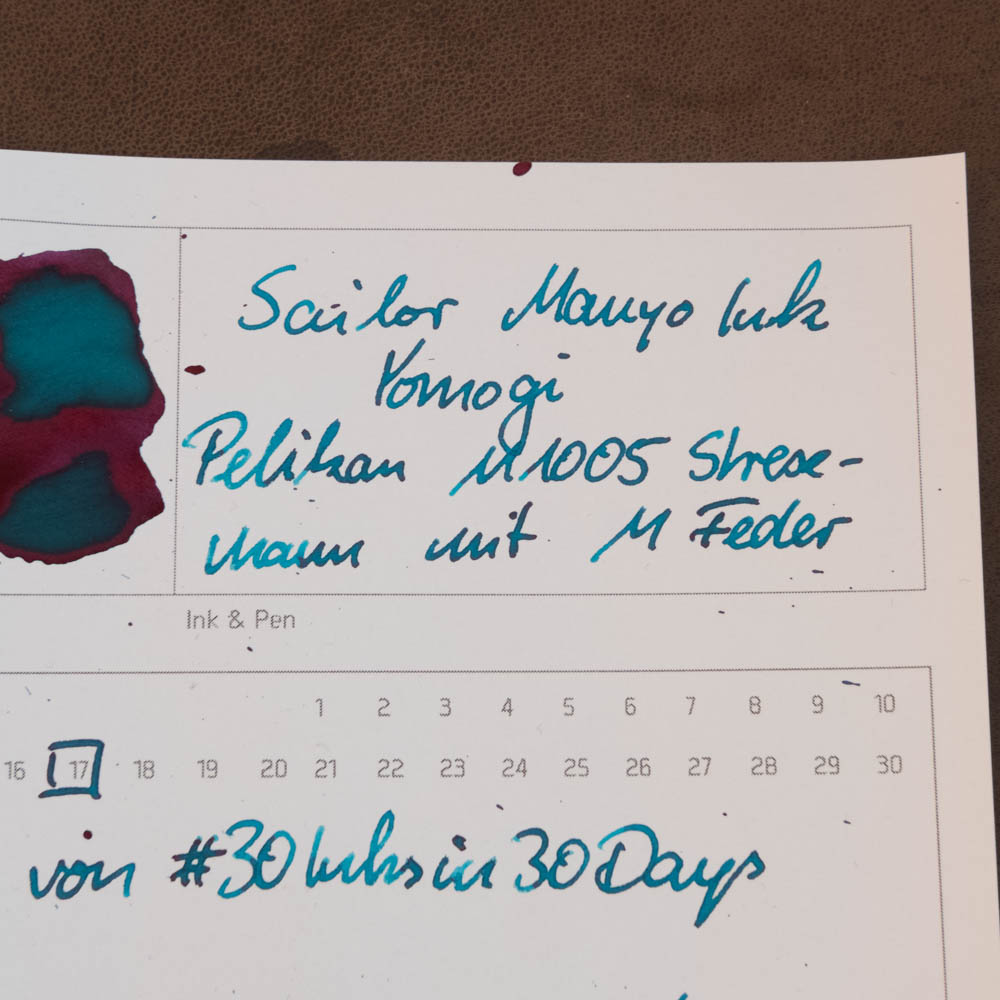 Sailor Manyo Ink
Yomogi
Pelikan M1005 Strese-
mann mit M Feder
Ink & Pen
1 2 3 4 5 6 7 8 9 10
16 17 18 19 20 21 22 23 24 25 26 27 28 29 30
von #30Inksin30Days